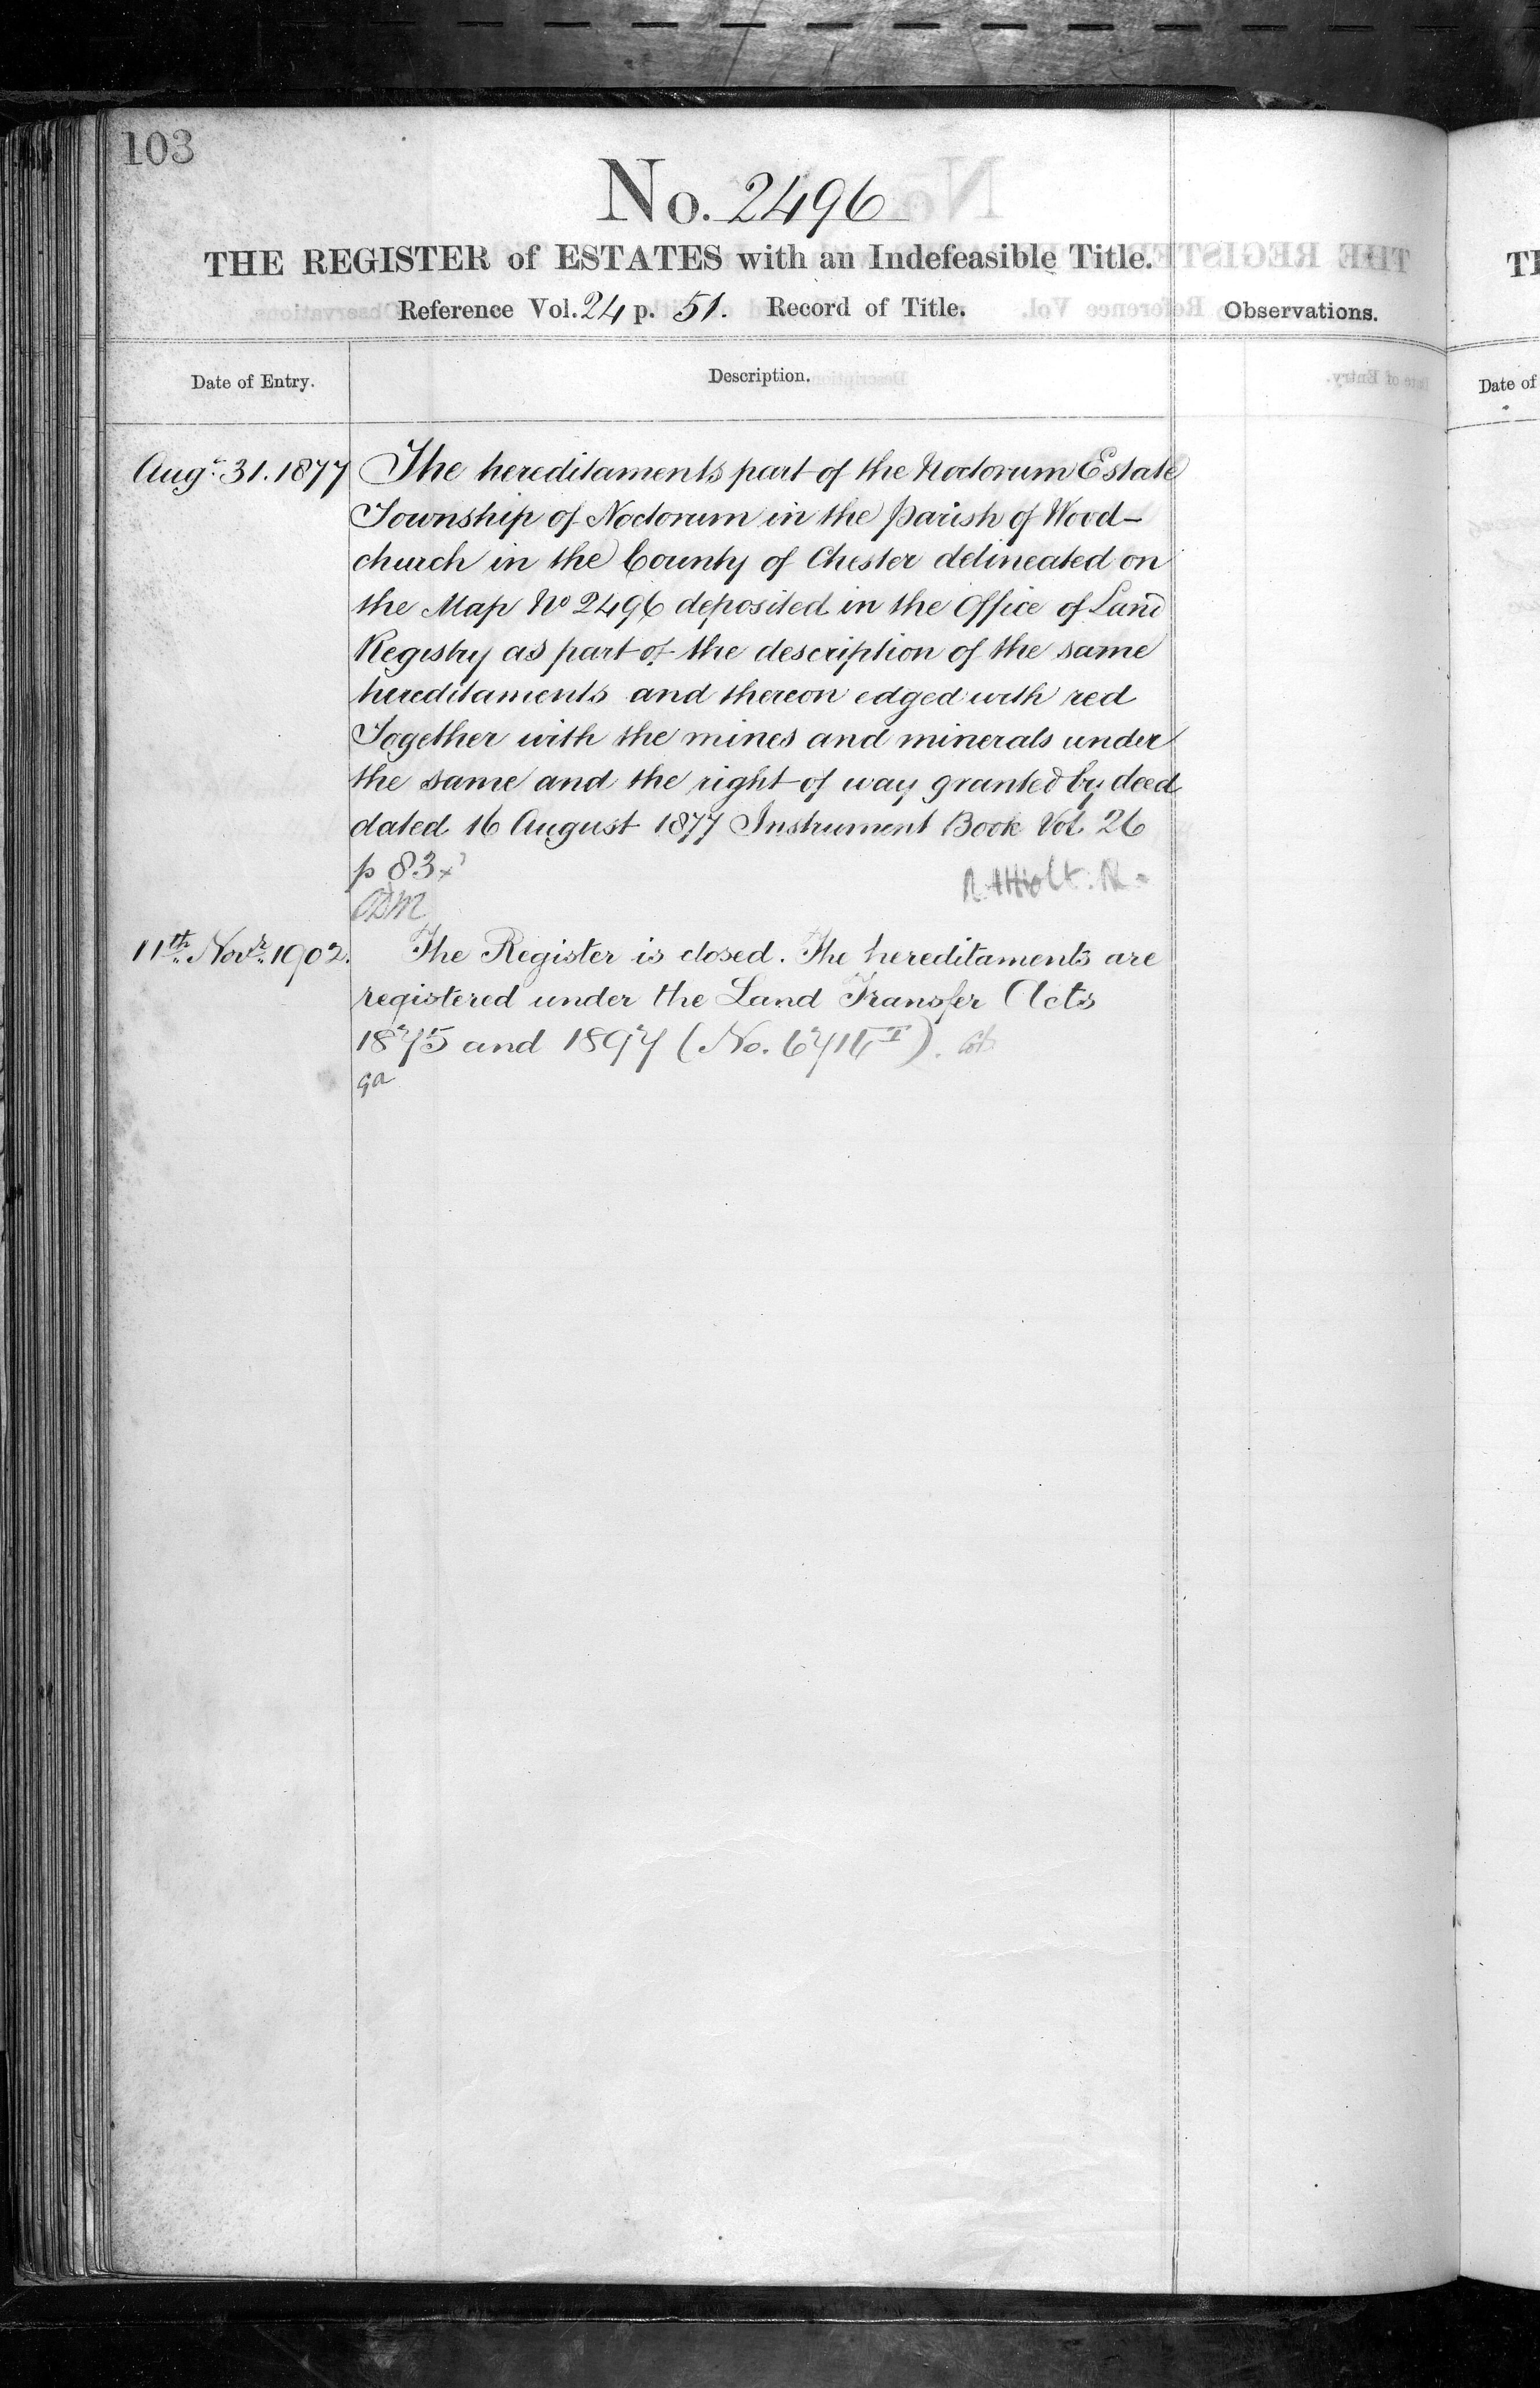 103
No. 2496
THE REGISTER of ESTATES with an Indefeasible Title.
Reference Vol. 24 p. 51. Record of Title.
Observations.
Date of Entry.
Description.
Augt. 31. 1877
The hereditaments part of the Noctorum Estate
Township of Noctorum in the Parish of Wood-
church in the County of Chester delineated on
the Map No 2496 deposited in the Office of Land
Registry as part of the description of the same
hereditaments and thereon edged with red
Together with the mines and minerals under
the same and the right of way granted by deed
dated 16 August 1877 Instrument Book Vol. 26
p 83
11th Novr. 1902.
The Register is closed. The hereditaments are
registered under the Land Transfer Acts
1875 and 1897 (No.
Date of